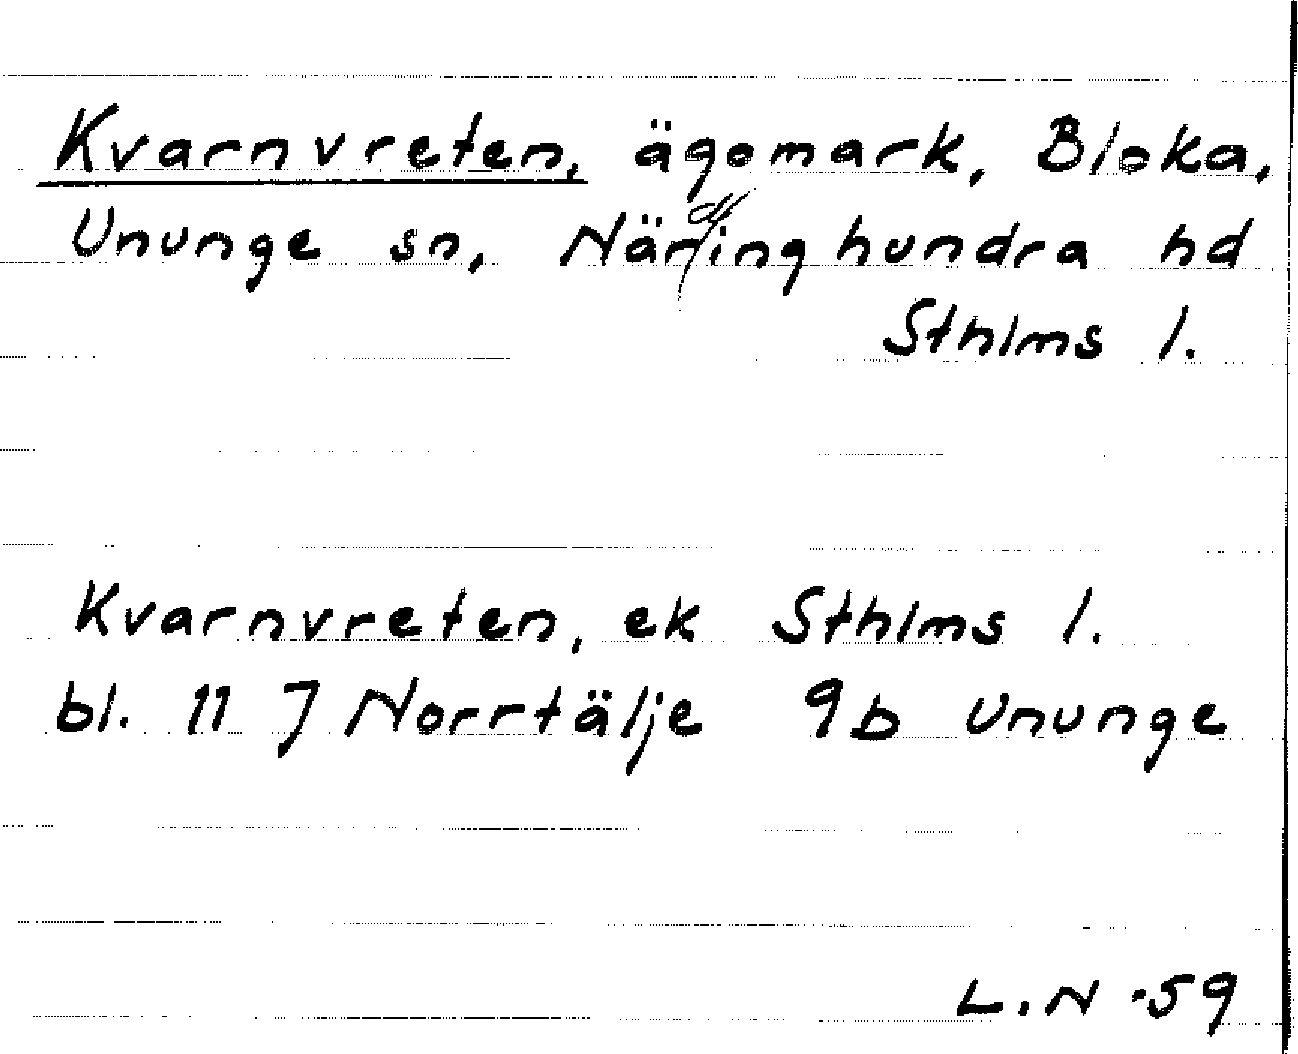 Kvarnvreten, ägomark, Bloka,
Ununge sn, Närdinghundra hd
Sthlms l.
Kvarnvreten, ek Sthlms l.
bl. 11 J Norrtälje 9b Ununge
L.N -59